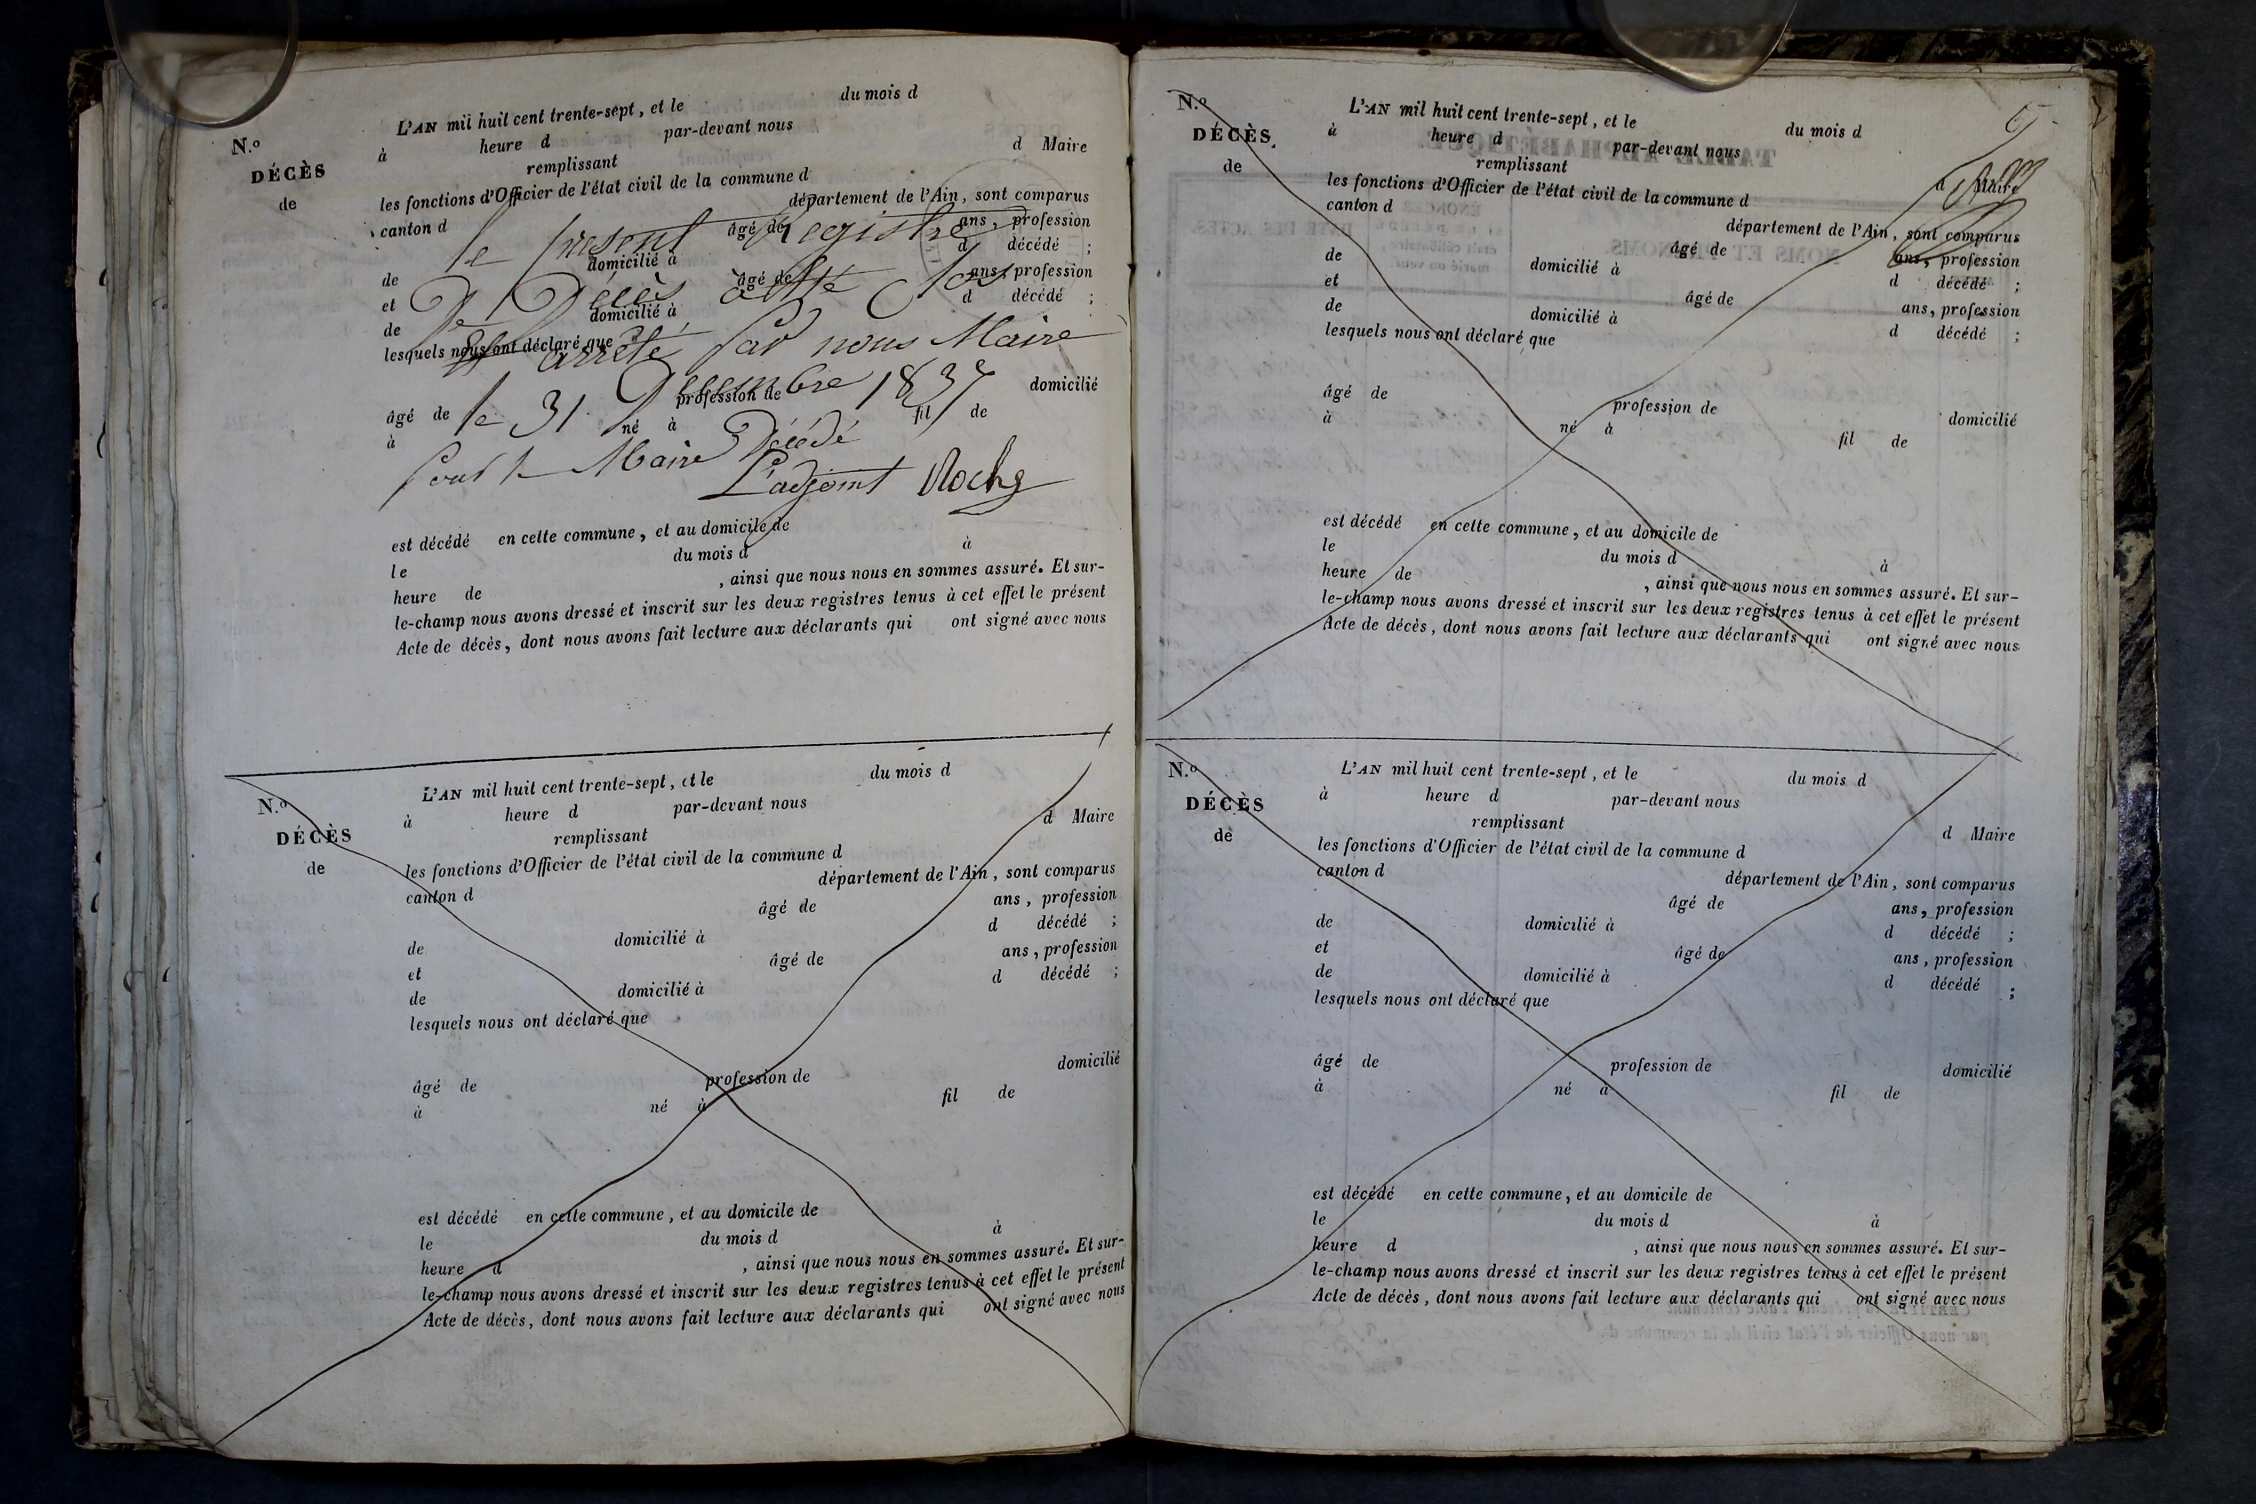 N.º
DÉCÈS
de
L'AN mil huit cent trente-sept, et le du mois d
à heure d par-devant nous
remplissant d Maire
les fonctions d'Officier de l'état civil de la commune d
canton d département de l'Ain, sont comparus
âgé de ans, profession
de domicilié à d décédé ;
et âgé de ans, profession
de domicilié à d décédé ;
lesquels nous ont déclaré que
âgé de profession de domicilié
à né à fil de
le présent Registre
De Décès a été clos
Et arrêté par nous Maire
le 31 Decembre 1837
pour le Maire Décédé
L'adjoint Rochg
est décédé en cette commune, et au domicile de
le du mois d à
heure de , ainsi que nous nous en sommes assuré. Et sur-
le-champ nous avons dressé et inscrit sur les deux registres tenus à cet effet le présent
Acte de décès, dont nous avons fait lecture aux déclarants qui ont signé avec nous
N.º
DÉCÈS
de
L'AN mil huit cent trente-sept, et le du mois d
à heure d par-devant nous
remplissant d Maire
les fonctions d'Officier de l'état civil de la commune d
canton d département de l'Ain, sont comparus
âgé de ans, profession
de domicilié à d décédé ;
et âgé de ans, profession
de domicilié à d décédé ;
lesquels nous ont déclaré que
âgé de profession de domicilié
à né à fil de
est décédé en cette commune, et au domicile de
le du mois d à
heure d , ainsi que nous nous en sommes assuré. Et sur-
le-champ nous avons dressé et inscrit sur les deux registres tenus à cet effet le présent
Acte de décès, dont nous avons fait lecture aux déclarants qui ont signé avec nous
N.º
DÉCÈS
de
L'AN mil huit cent trente-sept, et le du mois d
à heure d par-devant nous
remplissant d Maire
les fonctions d'Officier de l'état civil de la commune d
canton d département de l'Ain, sont comparus
âgé de ans, profession
de domicilié à d décédé ;
et âgé de ans, profession
de domicilié à d décédé ;
lesquels nous ont déclaré que
âgé de profession de domicilié
à né à fil de
est décédé en cette commune, et au domicile de
le du mois d à
heure de , ainsi que nous nous en sommes assuré. Et sur-
le-champ nous avons dressé et inscrit sur les deux registres tenus à cet effet le présent
Acte de décès, dont nous avons fait lecture aux déclarants qui ont signé avec nous
N.º
DÉCÈS
de
L'AN mil huit cent trente-sept, et le du mois d
à heure d par-devant nous
remplissant d Maire
les fonctions d'Officier de l'état civil de la commune d
canton d département de l'Ain, sont comparus
âgé de ans, profession
de domicilié à d décédé ;
et âgé de ans, profession
de domicilié à d décédé ;
lesquels nous ont déclaré que
âgé de profession de domicilié
à né à fil de
est décédé en cette commune, et au domicile de
le du mois d à
heure d , ainsi que nous nous en sommes assuré. Et sur-
le-champ nous avons dressé et inscrit sur les deux registres tenus à cet effet le présent
Acte de décès, dont nous avons fait lecture aux déclarants qui ont signé avec nous